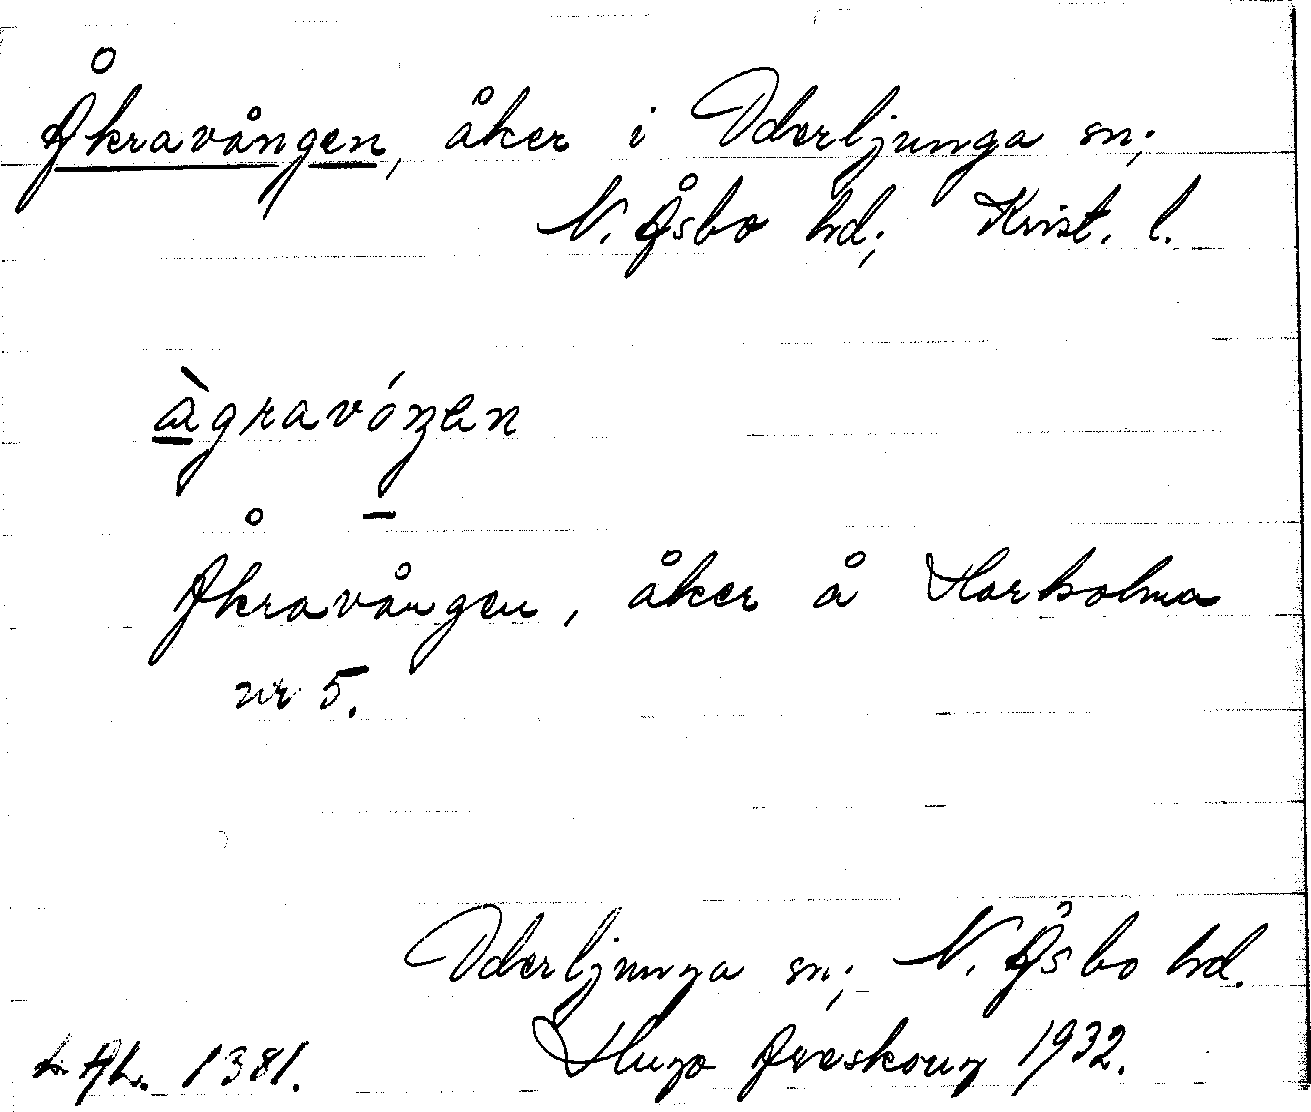 Åkravången, åker i Oderljunga sn;
N. Åsbo hd; Krist. l.
àgravóŋen
Åkravången, åker å Harholma
nr 5.
Oderljunga sn; N. Åsbo hd.
Hugo Areskoug 1932.
L. A. L. 1381.